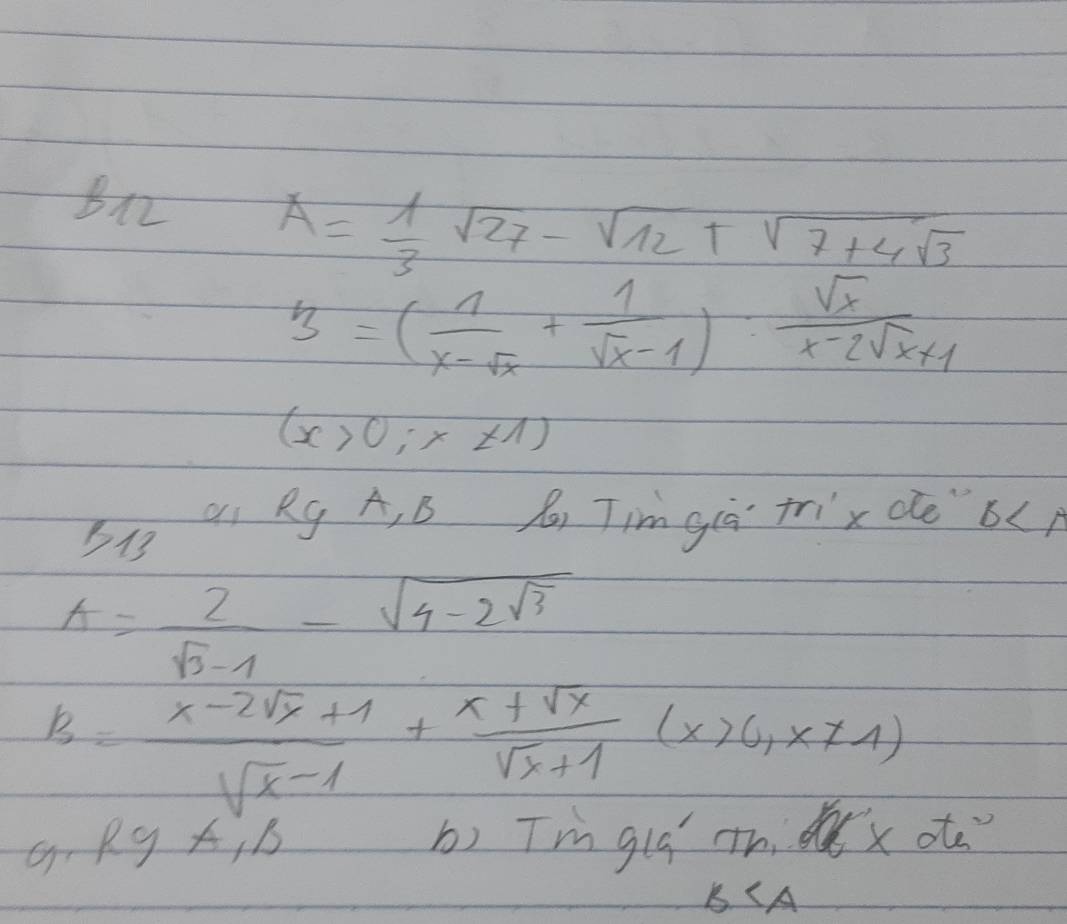 B12 A = 1/3 √27 - √12 + √(7+4√3)
B = (1/(x-√x) + 1/(√x-1)) : √x/(x-2√x+1)
(x>0; x≠1)
a, Rg A,B b, Tìm giá trị x để B< A
B13
A = 2/(√3-1) - √(4-2√3)
B = (x-2√x+1)/(√x-1) + (x+√x)/(√x+1) (x>0, x≠1)
a. Rg A,B b) Tìm giá trị x để
B<A